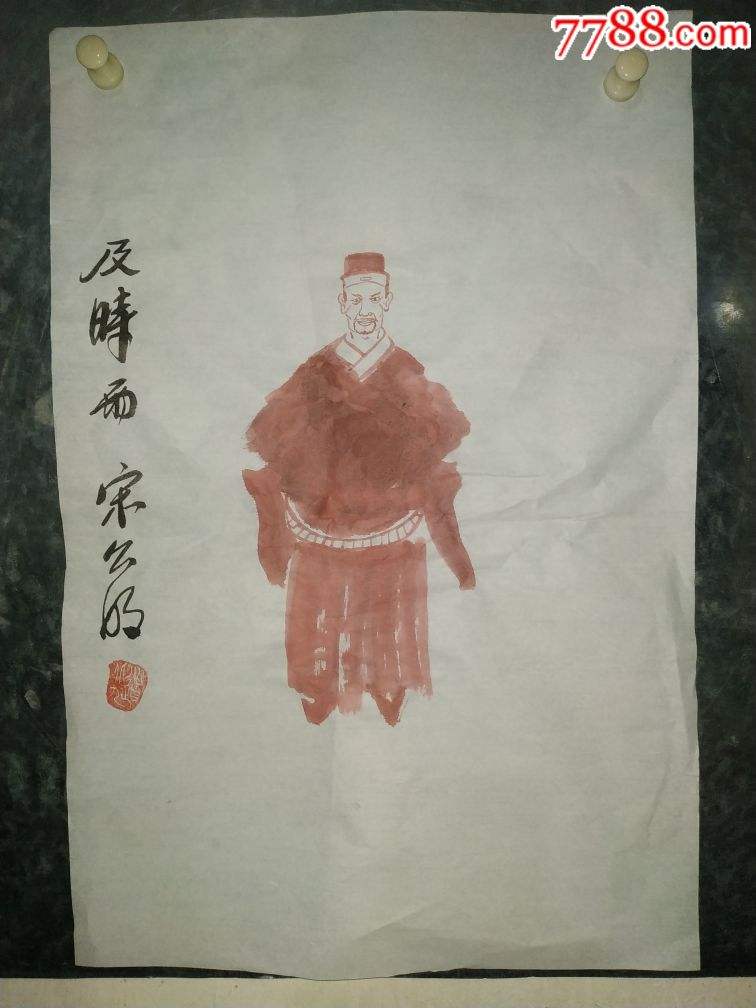 7788.com
及時雨 宋公明